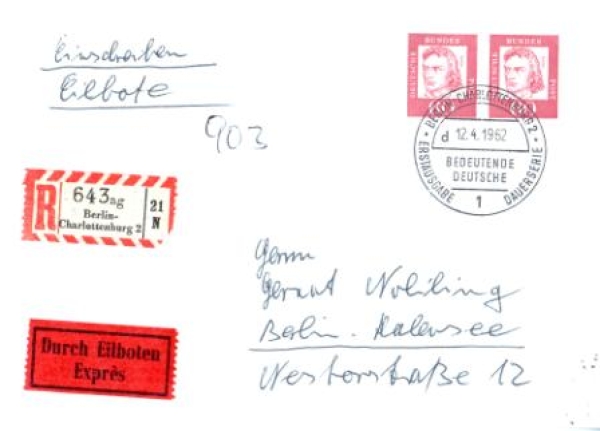 Einschreiben
Eilbote
903
DEUTSCHE BUNDES POST
DEUTSCHE BUNDES POST
BERLIN-CHARLOTTENBURG 2
d 12.4.1962
BEDEUTENDE
DEUTSCHE
ERSTAUSGABE 1 DAUERSERIE
R 643ag 21
Berlin- N
Charlottenburg 2
Herrn
Gernot Nobiling
Berlin-Halensee
Nestorstraße 12
Durch Eilboten
Exprès